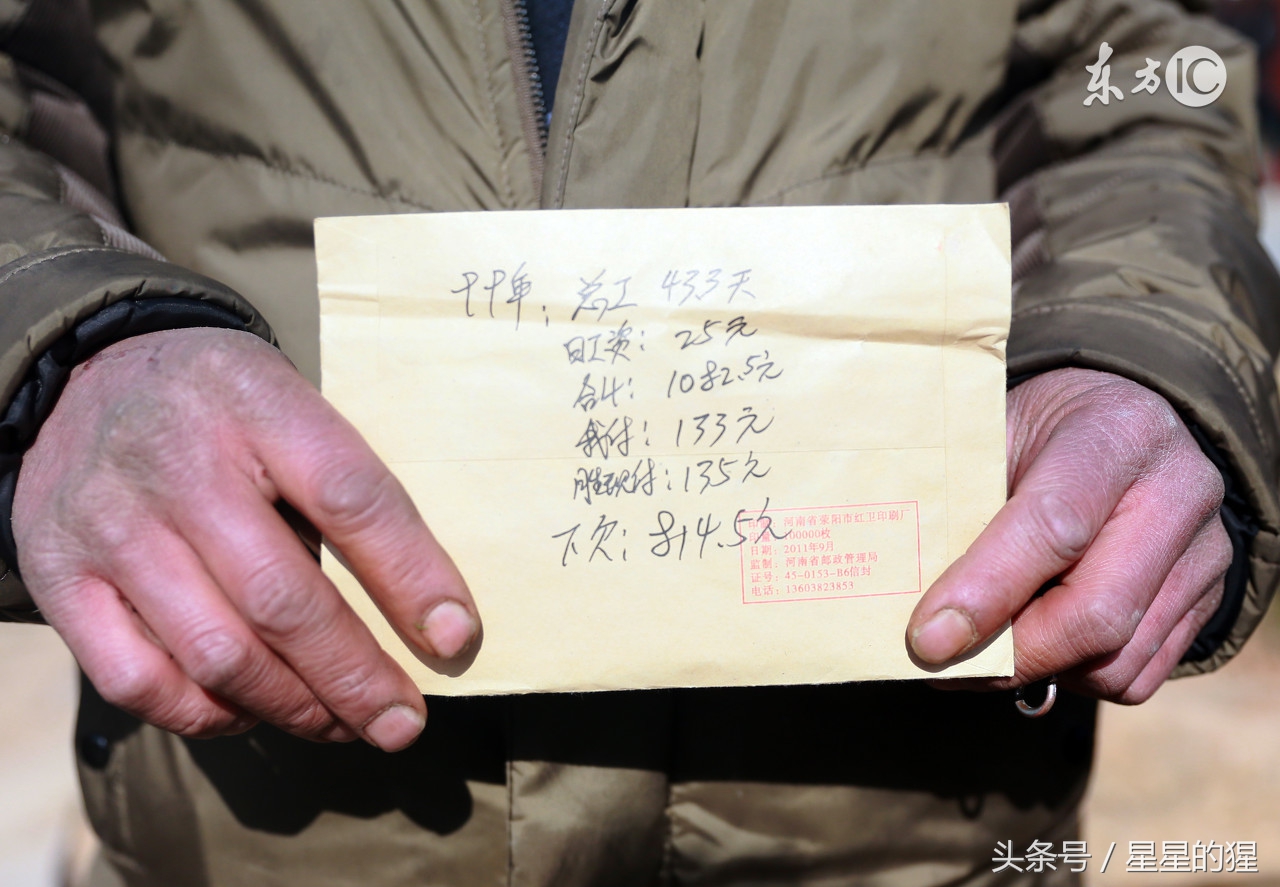 东方IC
总工 43.3天
日工资: 25元
合计: 1082.5元
我付: 133元
胜现付: 135元
下欠: 814.5元
河南省荥阳市红卫印刷厂
100000枚
日期: 2011年9月
监制: 河南省邮政管理局
证号: 45-0153-B6信封
电话: 13603823853
头条号 / 星星的猩